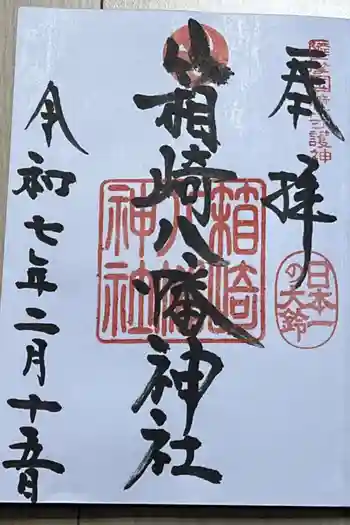 奉拝
日本一の大鈴
箱崎八幡神社
箱崎八幡神社
令和七年二月十五日